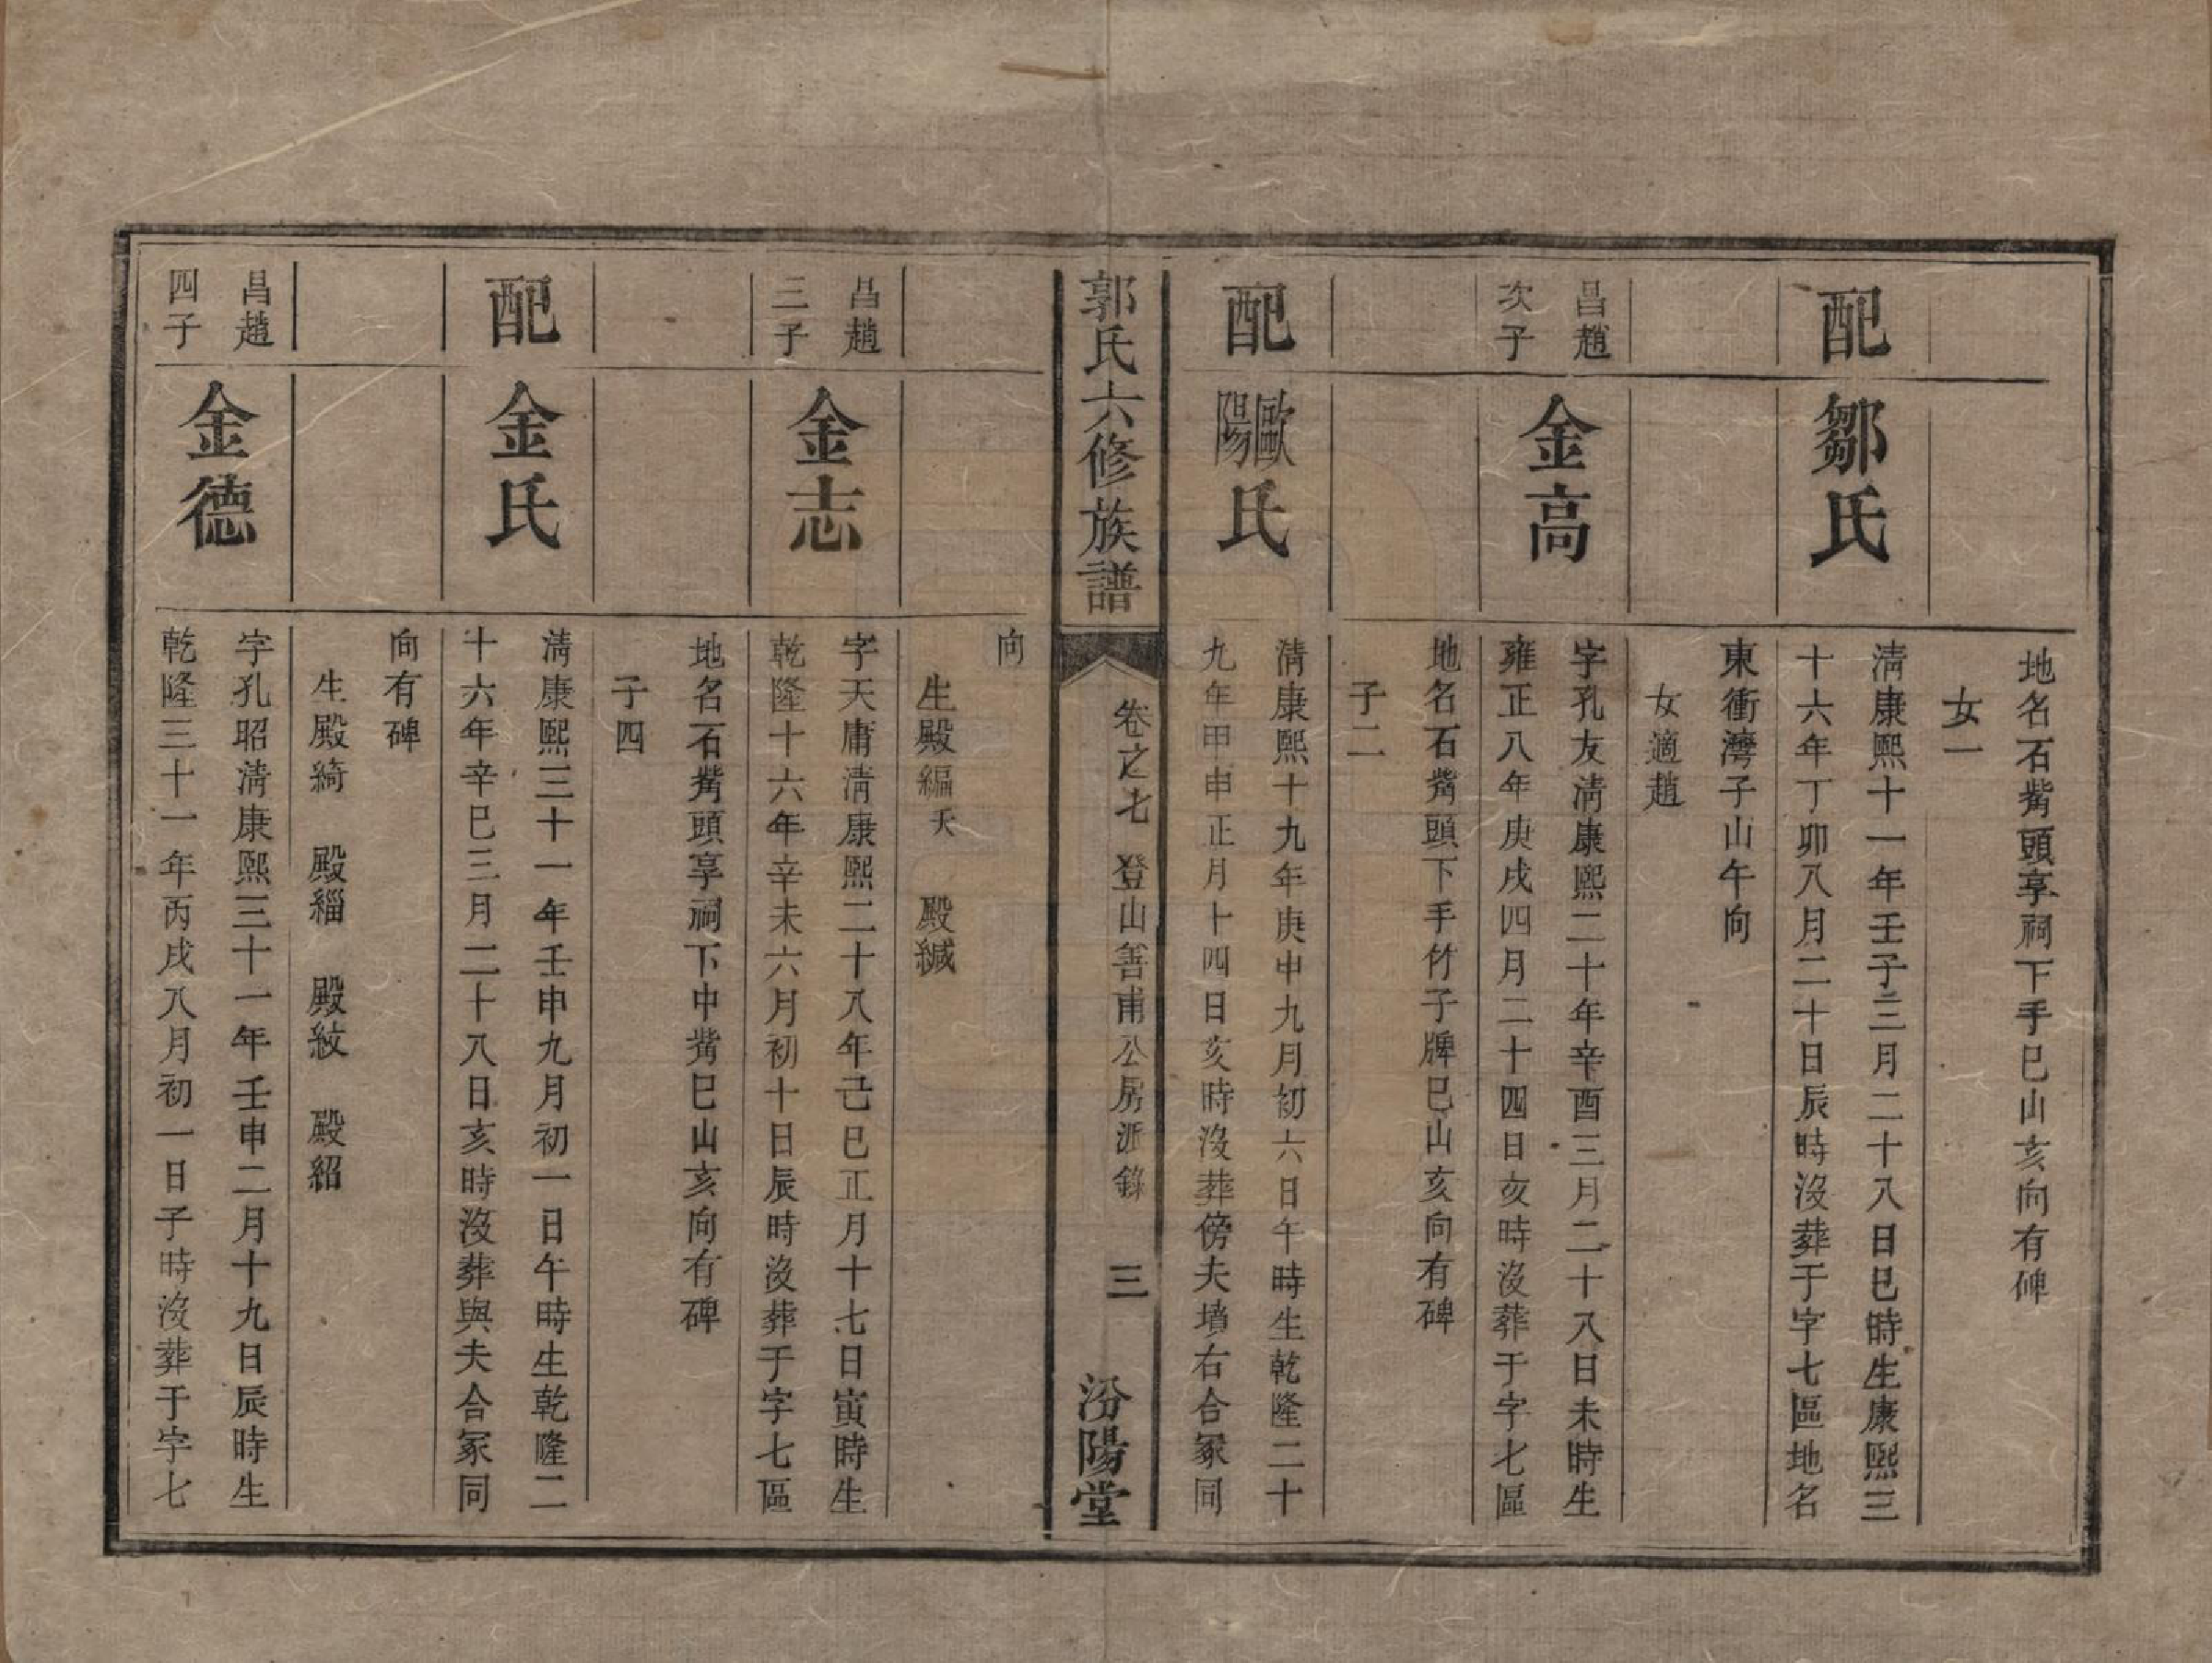 地名石觜頭享祠下手巳山亥向有碑
女一
配
鄒氏
清康熙十一年壬子三月二十八日巳時生康熙三
十六年丁卯八月二十日辰時沒葬于字七區地名
東衝灣子山午向
女適趙
昌趙
次子
金高
字孔友清康熙二十年辛酉三月二十八日未時生
雍正八年庚戌四月二十四日亥時沒葬于字七區
地名石觜頭下手竹子牌巳山亥向有碑
子二
配
歐陽氏
清康熙十九年庚申九月初六日午時生乾隆二十
九年甲申正月十四日亥時沒葬傍夫墳右合冢同
郭氏六修族譜
卷之七 登山善甫公房派錄
三
汾陽堂
向
生殿編夭 殿緘
昌趙
三子
金志
字天庸清康熙二十八年己巳正月十七日寅時生
乾隆十六年辛未六月初十日辰時沒葬于字七區
地名石觜頭享祠下中觜巳山亥向有碑
子四
配
金氏
清康熙三十一年壬申九月初一日午時生乾隆二
十六年辛巳三月二十八日亥時沒葬與夫合冢同
向有碑
生殿綺 殿緇 殿紋 殿紹
昌趙
四子
金德
字孔昭清康熙三十一年壬申二月十九日辰時生
乾隆三十一年丙戌八月初一日子時沒葬于字七